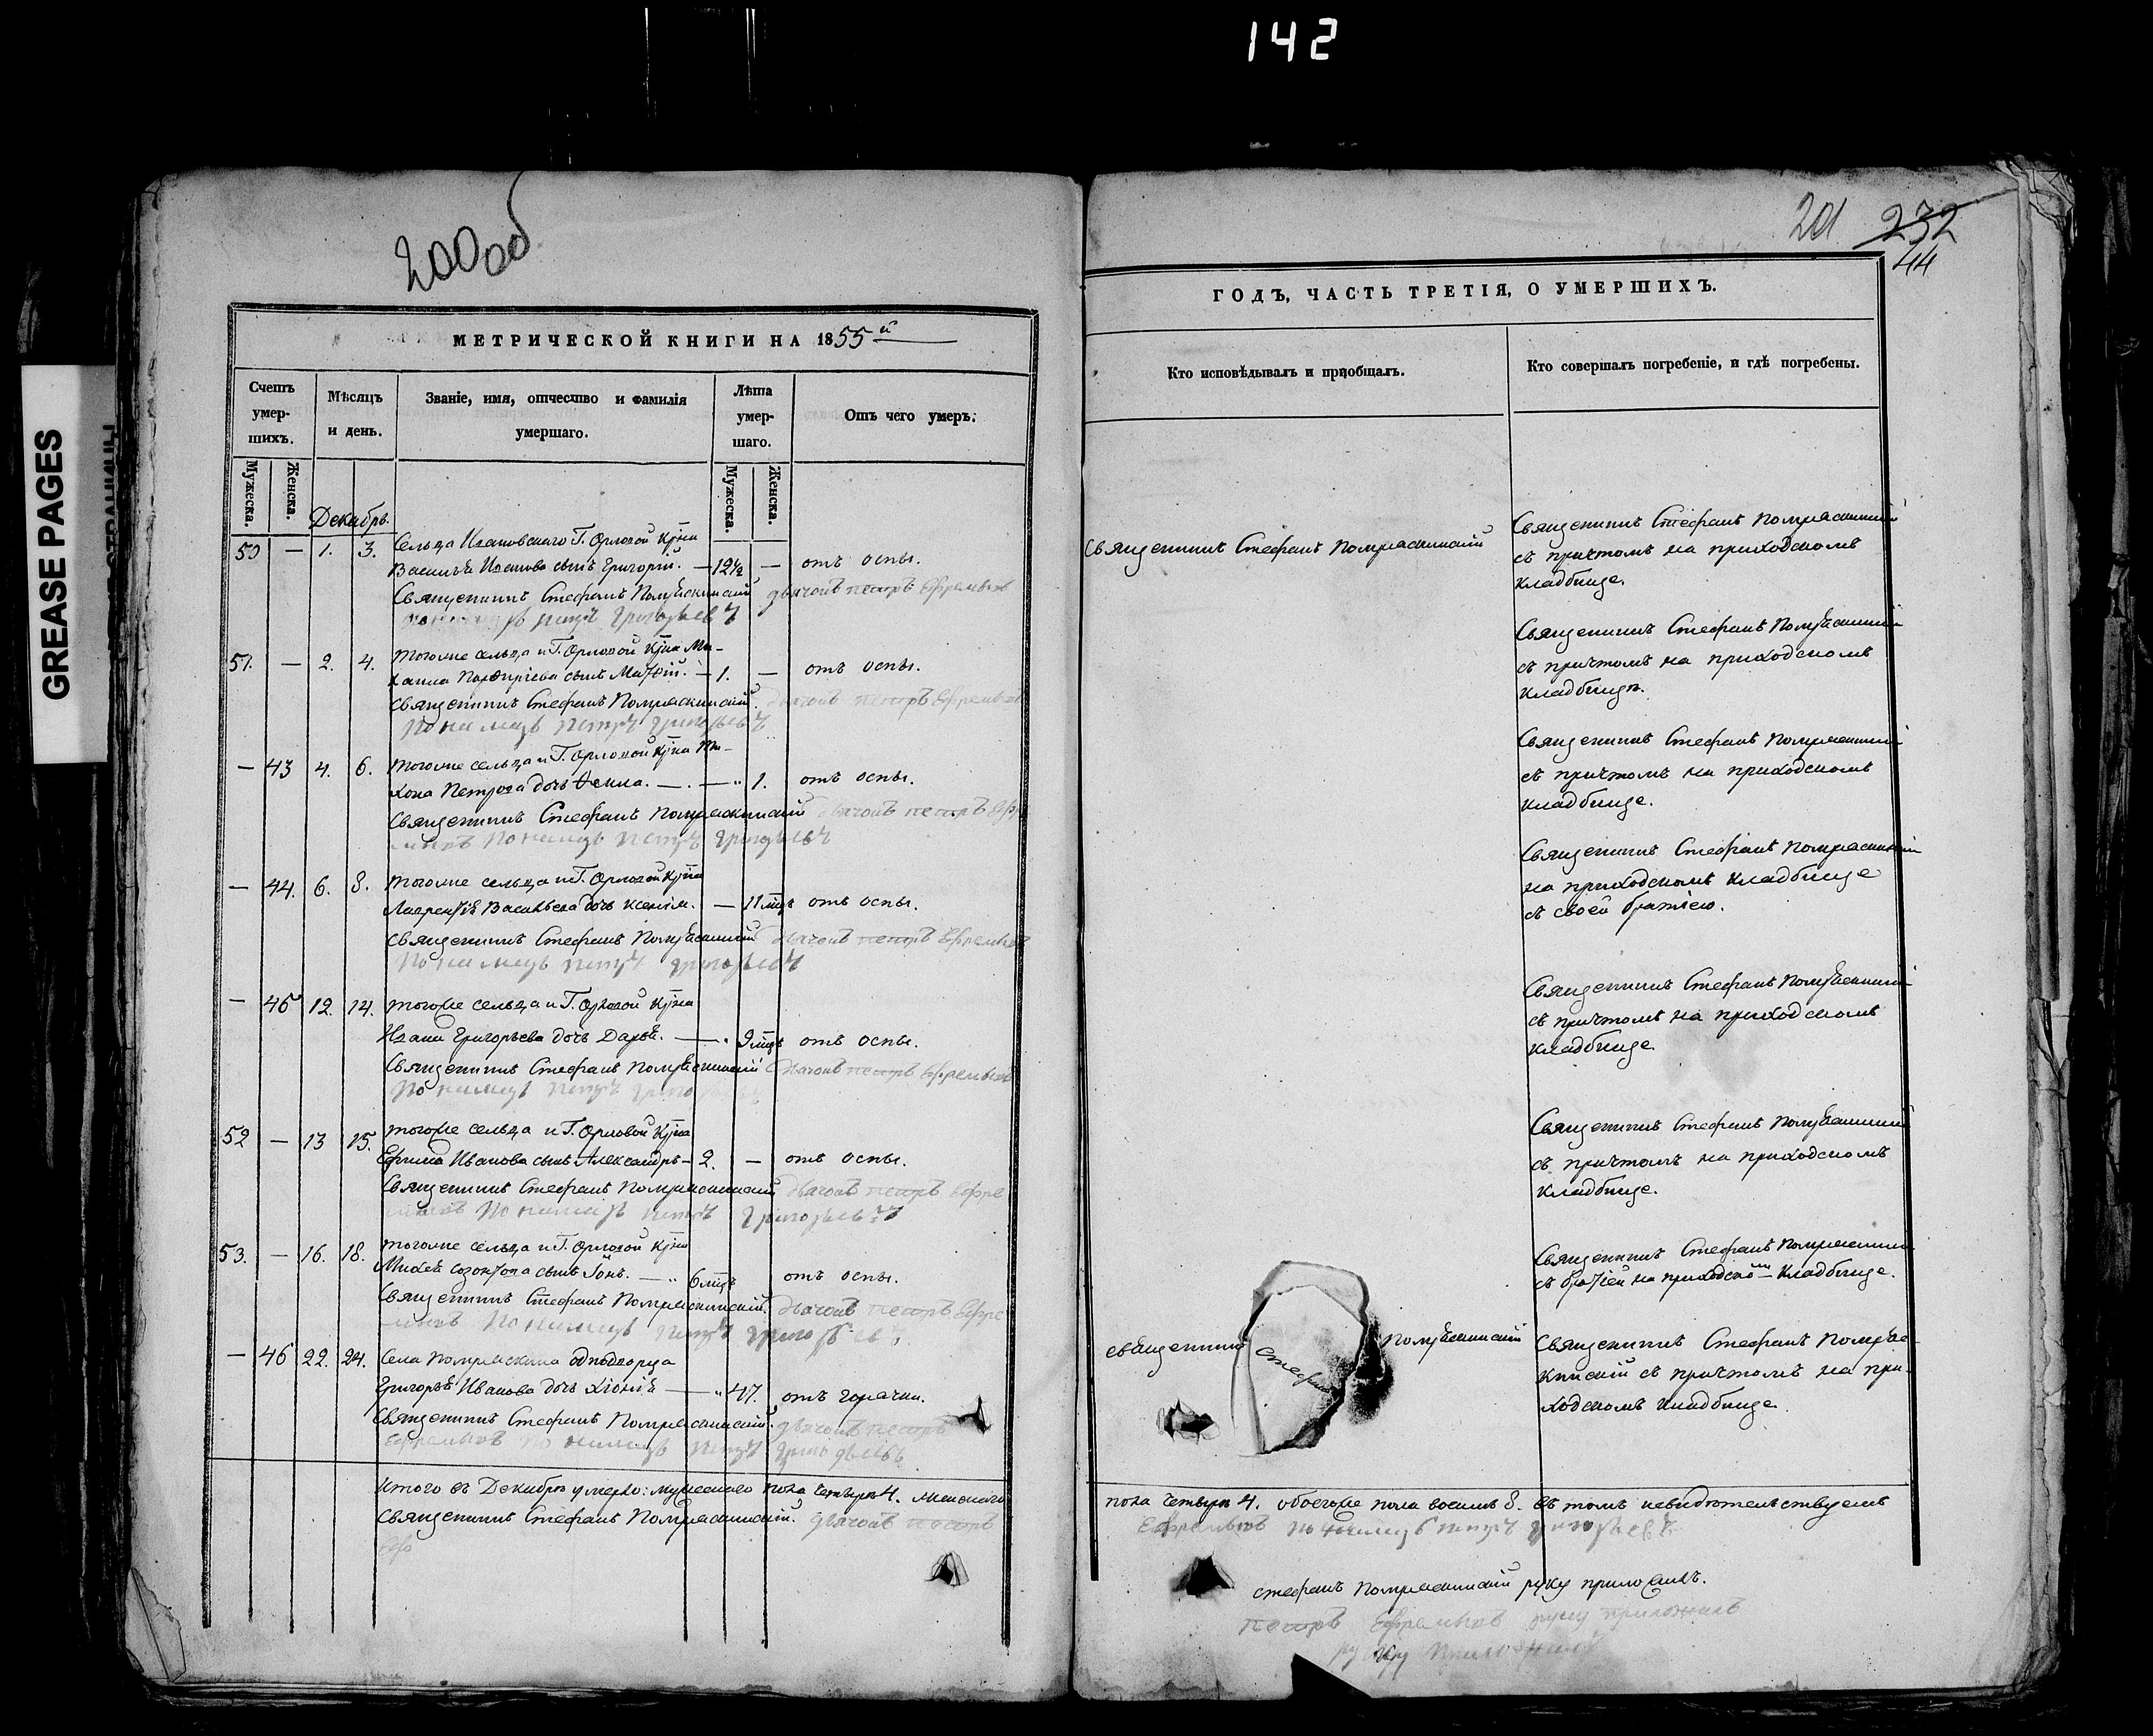 142
GREASE PAGES
200об
201 232
44
МЕТРИЧЕСКОЙ КНИГИ НА 1855й
Счетъ умер-шихъ.
Мужеска. Женска.
Мѣсяцъ и день.
Званіе, имя, отчество и фамилія умершаго.
Лѣта умер-шаго.
Мужеска. Женска.
Отъ чего умеръ.
Декабрь.
50 — 1. 3. Сельца Ивановскаго Г. Орловой Крна
Василья Иванова сынъ Григорій. — 12½ — отъ оспы.
Священникъ Стефанъ дьячокъ петръ Ефремовъ
петръ григорьевъ
51. — 2. 4. Тогоже сельца и Г. Орловой Крна Ми-
хаила Порфиріева сынъ — 1. — отъ оспы.
Священникъ Стефанъ дьячокъ петръ Ефремовъ
пономарь петръ григорьевъ
— 43 4. 6. Тогоже сельца и Г. Орловой Крна Ти-
хона Петрова дочь Ѳекла. — . — " 1. отъ оспы.
Священникъ Стефанъ дьячокъ петръ Ефре
мовъ пономарь петръ григорьевъ
— 44. 6. 8. Тогоже сельца и Г. Орловой Крна
Лаврентія Васильева дочь Ксенія. — 11 мцъ отъ оспы.
Священникъ Стефанъ дьячокъ петръ Ефремовъ
пономарь петръ григорьевъ
— 45 12. 14. Тогоже сельца и Г. Орловой Крна
Ивана Григорьева дочь Дарья. — . 9 мцъ отъ оспы.
Священникъ Стефанъ дьячокъ петръ Ефремовъ
пономарь петръ
52 — 13 15. Тогоже сельца и Г. Орловой Крна
Ефима Иванова сынъ Александръ — 2. — отъ оспы.
Священникъ Стефанъ дьячокъ петръ Ефре
мовъ пономарь петръ григорьевъ
53. — 16. 18. Тогоже сельца и Г. Орловой Крна
сынъ Іонъ. — " 6 мцъ отъ оспы.
Священникъ Стефанъ дьячокъ петръ Ефре
мовъ пономарь петръ григорьевъ
— 46 22. 24. Села однодворца
Григорья Иванова дочь Хіонія — " 47. отъ горячки.
Священникъ Стефанъ дьячокъ петръ
Ефремовъ пономарь петръ григорьевъ
Итого въ Декабрѣ умерло: мужескаго пола четыре 4. женскаго
Священникъ Стефанъ дьячокъ петръ
Ефр
ГОДЪ, ЧАСТЬ ТРЕТІЯ, О УМЕРШИХЪ.
Кто исповѣдывалъ и пріобщалъ.
Кто совершалъ погребеніе, и гдѣ погребены.
Священникъ Стефанъ
Священникъ Стефанъ
съ причтомъ на приходскомъ
кладбище.
Священникъ Стефанъ
съ причтомъ на приходскомъ
кладбищѣ.
Священникъ Стефанъ
съ причтомъ на приходскомъ
кладбище.
Священникъ Стефанъ
на приходскомъ кладбище
съ своей братіею.
Священникъ Стефанъ
съ причтомъ на приходскомъ
кладбище
Священникъ Стефанъ
съ причтомъ на приходскомъ
кладбище.
Священникъ Стефанъ
съ братіей на приходском кладбище.
священникъ Стефанъ
Священникъ Стефанъ
съ причтомъ на при-
ходскомъ кладбище.
пола четыре 4. обоегоже пола восемь 8. Въ томъ свидѣтельствуемъ
Ефремовъ пономарь петръ григорьевъ
стефанъ руку приложилъ.
петръ Ефремовъ руку приложилъ
руку приложилъ